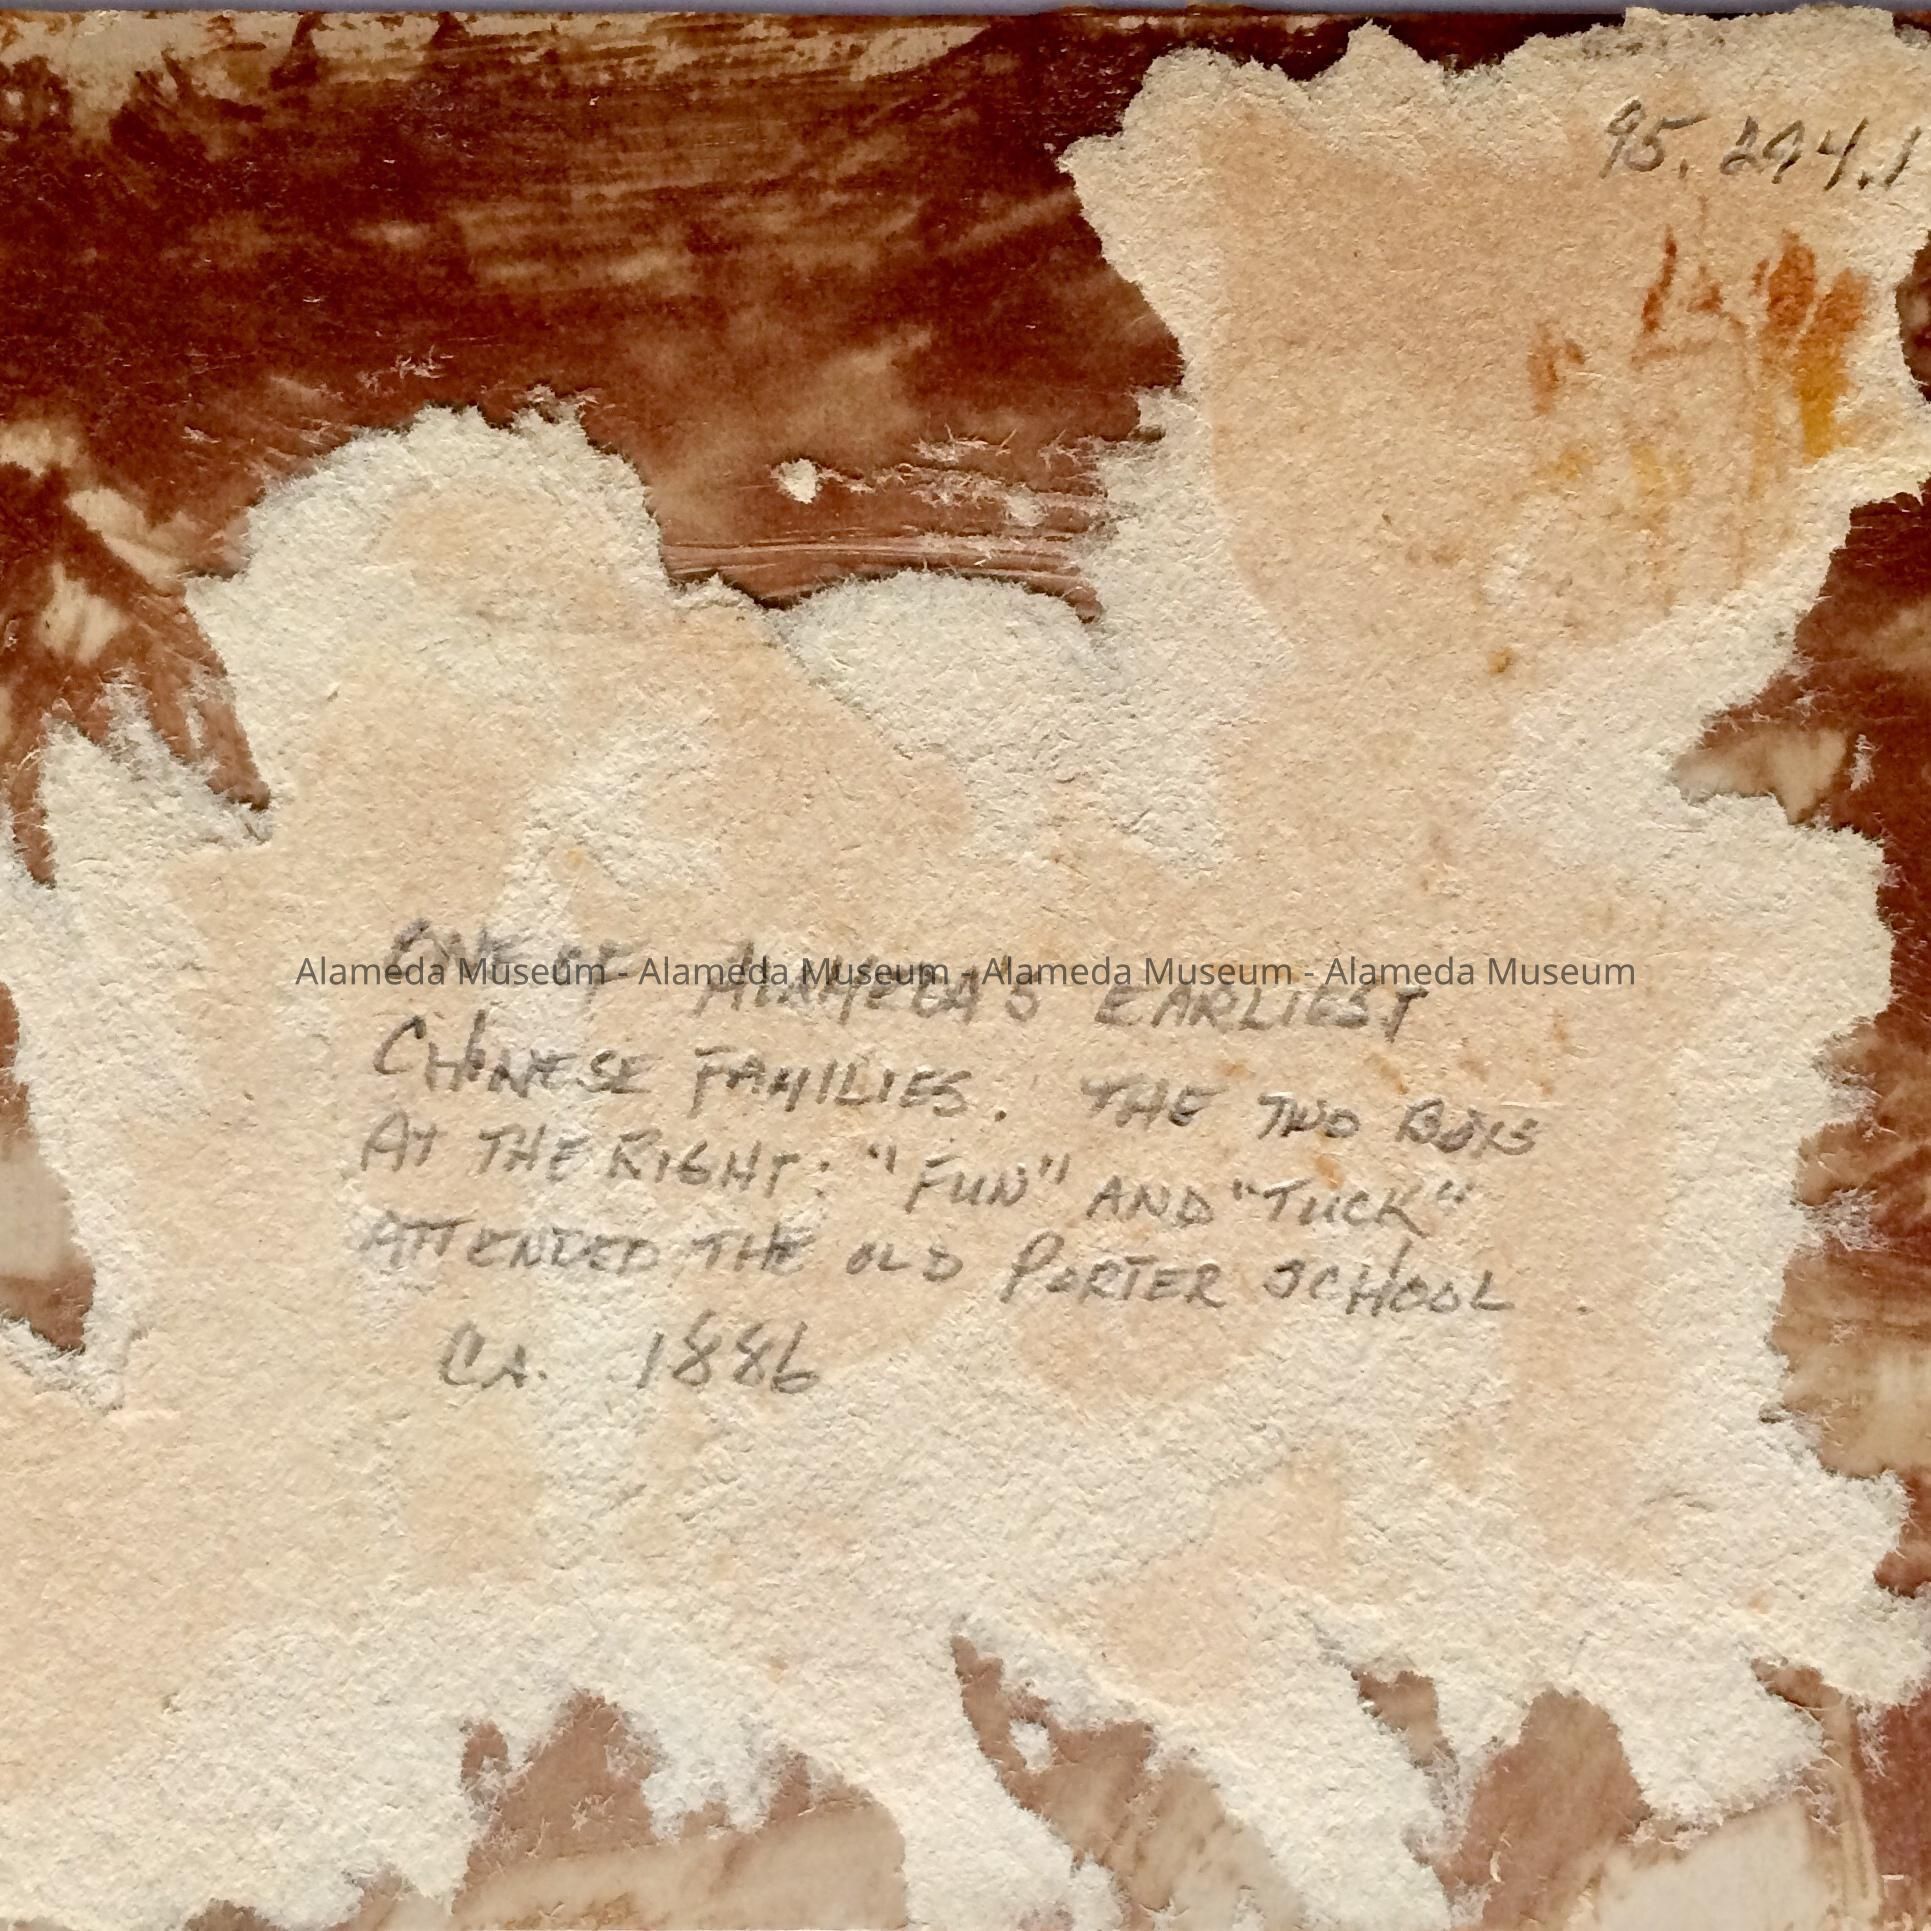 95.294.1
ONE OF ALAMEDA'S EARLIEST
Alameda Museum - Alameda Museum - Alameda Museum - Alameda Museum
CHINESE FAMILIES. THE TWO BOYS
AT THE RIGHT: "FUN" AND "TUCK"
ATTENDED THE OLD PORTER SCHOOL.
CA. 1886